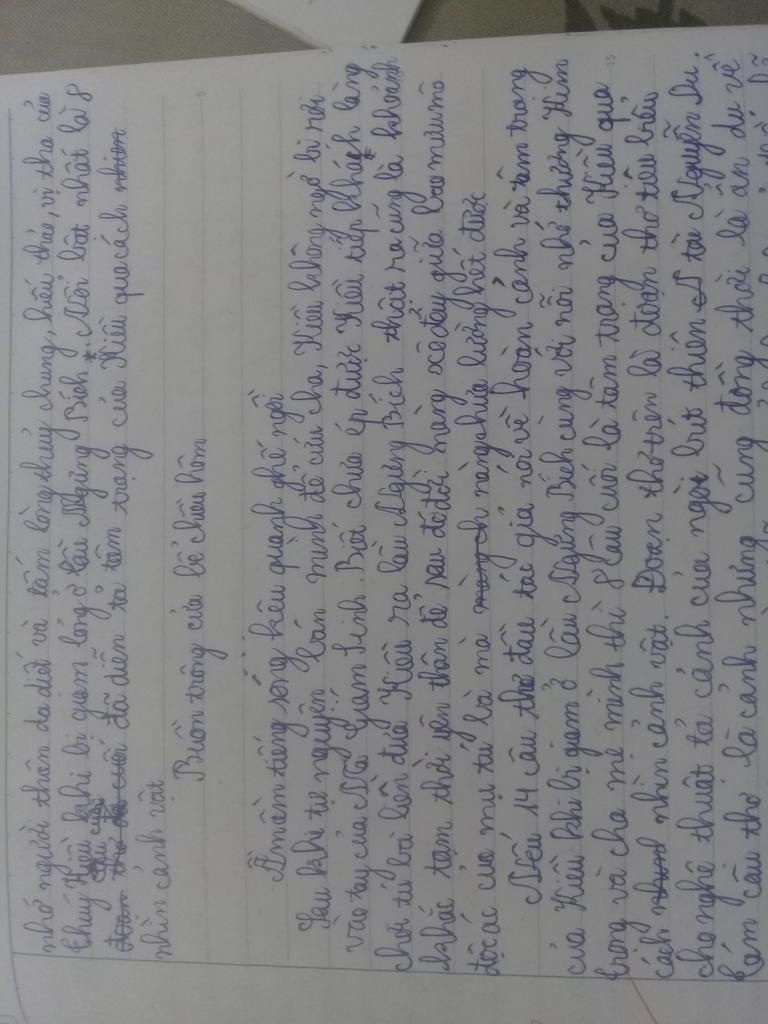 nhớ người thân da diết và tấm lòng thuỷ chung, hiếu thảo, vị tha của
thuý Kiều khi bị giam lỏng ở lầu Ngưng Bích. Nổi bật nhất là 8
câu cuối đã diễn tả tâm trạng của Kiều qua cách nhìn
nhìn cảnh vật
Buồn trông cửa bể chiều hôm
...
Ầm ầm tiếng sóng kêu quanh ghế ngồi
Sau khi tự nguyện bán mình để cứu cha, Kiều không ngờ bị rơi
vào tay của Mã Giám Sinh. Biết chưa ép được Kiều tiếp khách làng
chơi tú bà liền đưa Kiều ra lầu Ngưng Bích thật ra cũng là khoảnh
khắc tạm thời yên thân để sau đó đời nàng xô đẩy giữa bao mưu mô
độc ác của mụ tú bà mà nàng chưa lường hết được
Nếu 14 câu thơ đầu tác giả nói về hoàn cảnh và tâm trạng
của Kiều khi bị giam ở lầu Ngưng Bích cùng với nỗi nhớ thương Kim
trọng và cha mẹ mình thì 8 câu cuối là tâm trạng của Kiều qua
cách nhìn cảnh vật. Đoạn thơ trên là đoạn thơ tiêu biểu
cho nghệ thuật tả cảnh của ngòi bút thiên tài Nguyễn Du.
tám câu thơ là cảnh nhưng cũng đồng thời là ẩn dụ về